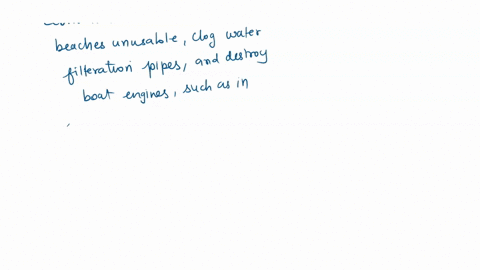 beaches unusable, clog water
filteration pipes, and destroy
boat engines, such as in